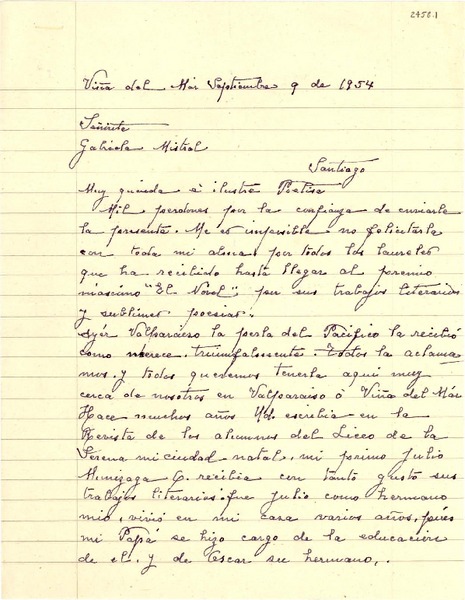 2458.1
Viña del Mar Septiembre 9 de 1954
Señorita
Gabriela Mistral
Santiago
Muy querida é ilustre Poetisa
Mil perdones por la confianza de enviarle
la presente. Me es imposible no felicitarla
con toda mi alma por todos los laureles
que ha recibido hasta llegar al premio
máximo "El Nobel", por sus trabajos literarios
y sublimes poesias.
Ayér Valparaiso la perla del Pacífico la recibió
como merece. triumfalmente. Todos la aclama
mos. y todos queremos tenerla aquí muy
cerca de nosotros en Valparaiso ó Viña del Már
Hace muchos años Ud. escribia en la
Revista de los alumnos del Liceo de la
Serena mi ciudad natal, mi primo Julio
Munizaga O. recibia con tanto gusto sus
trabajos literarios. fue Julio como hermano
mio, vivió en mi casa varios años, pués
mi Papá se hizo cargo de la educación
de el. y de Oscar su hermano,.